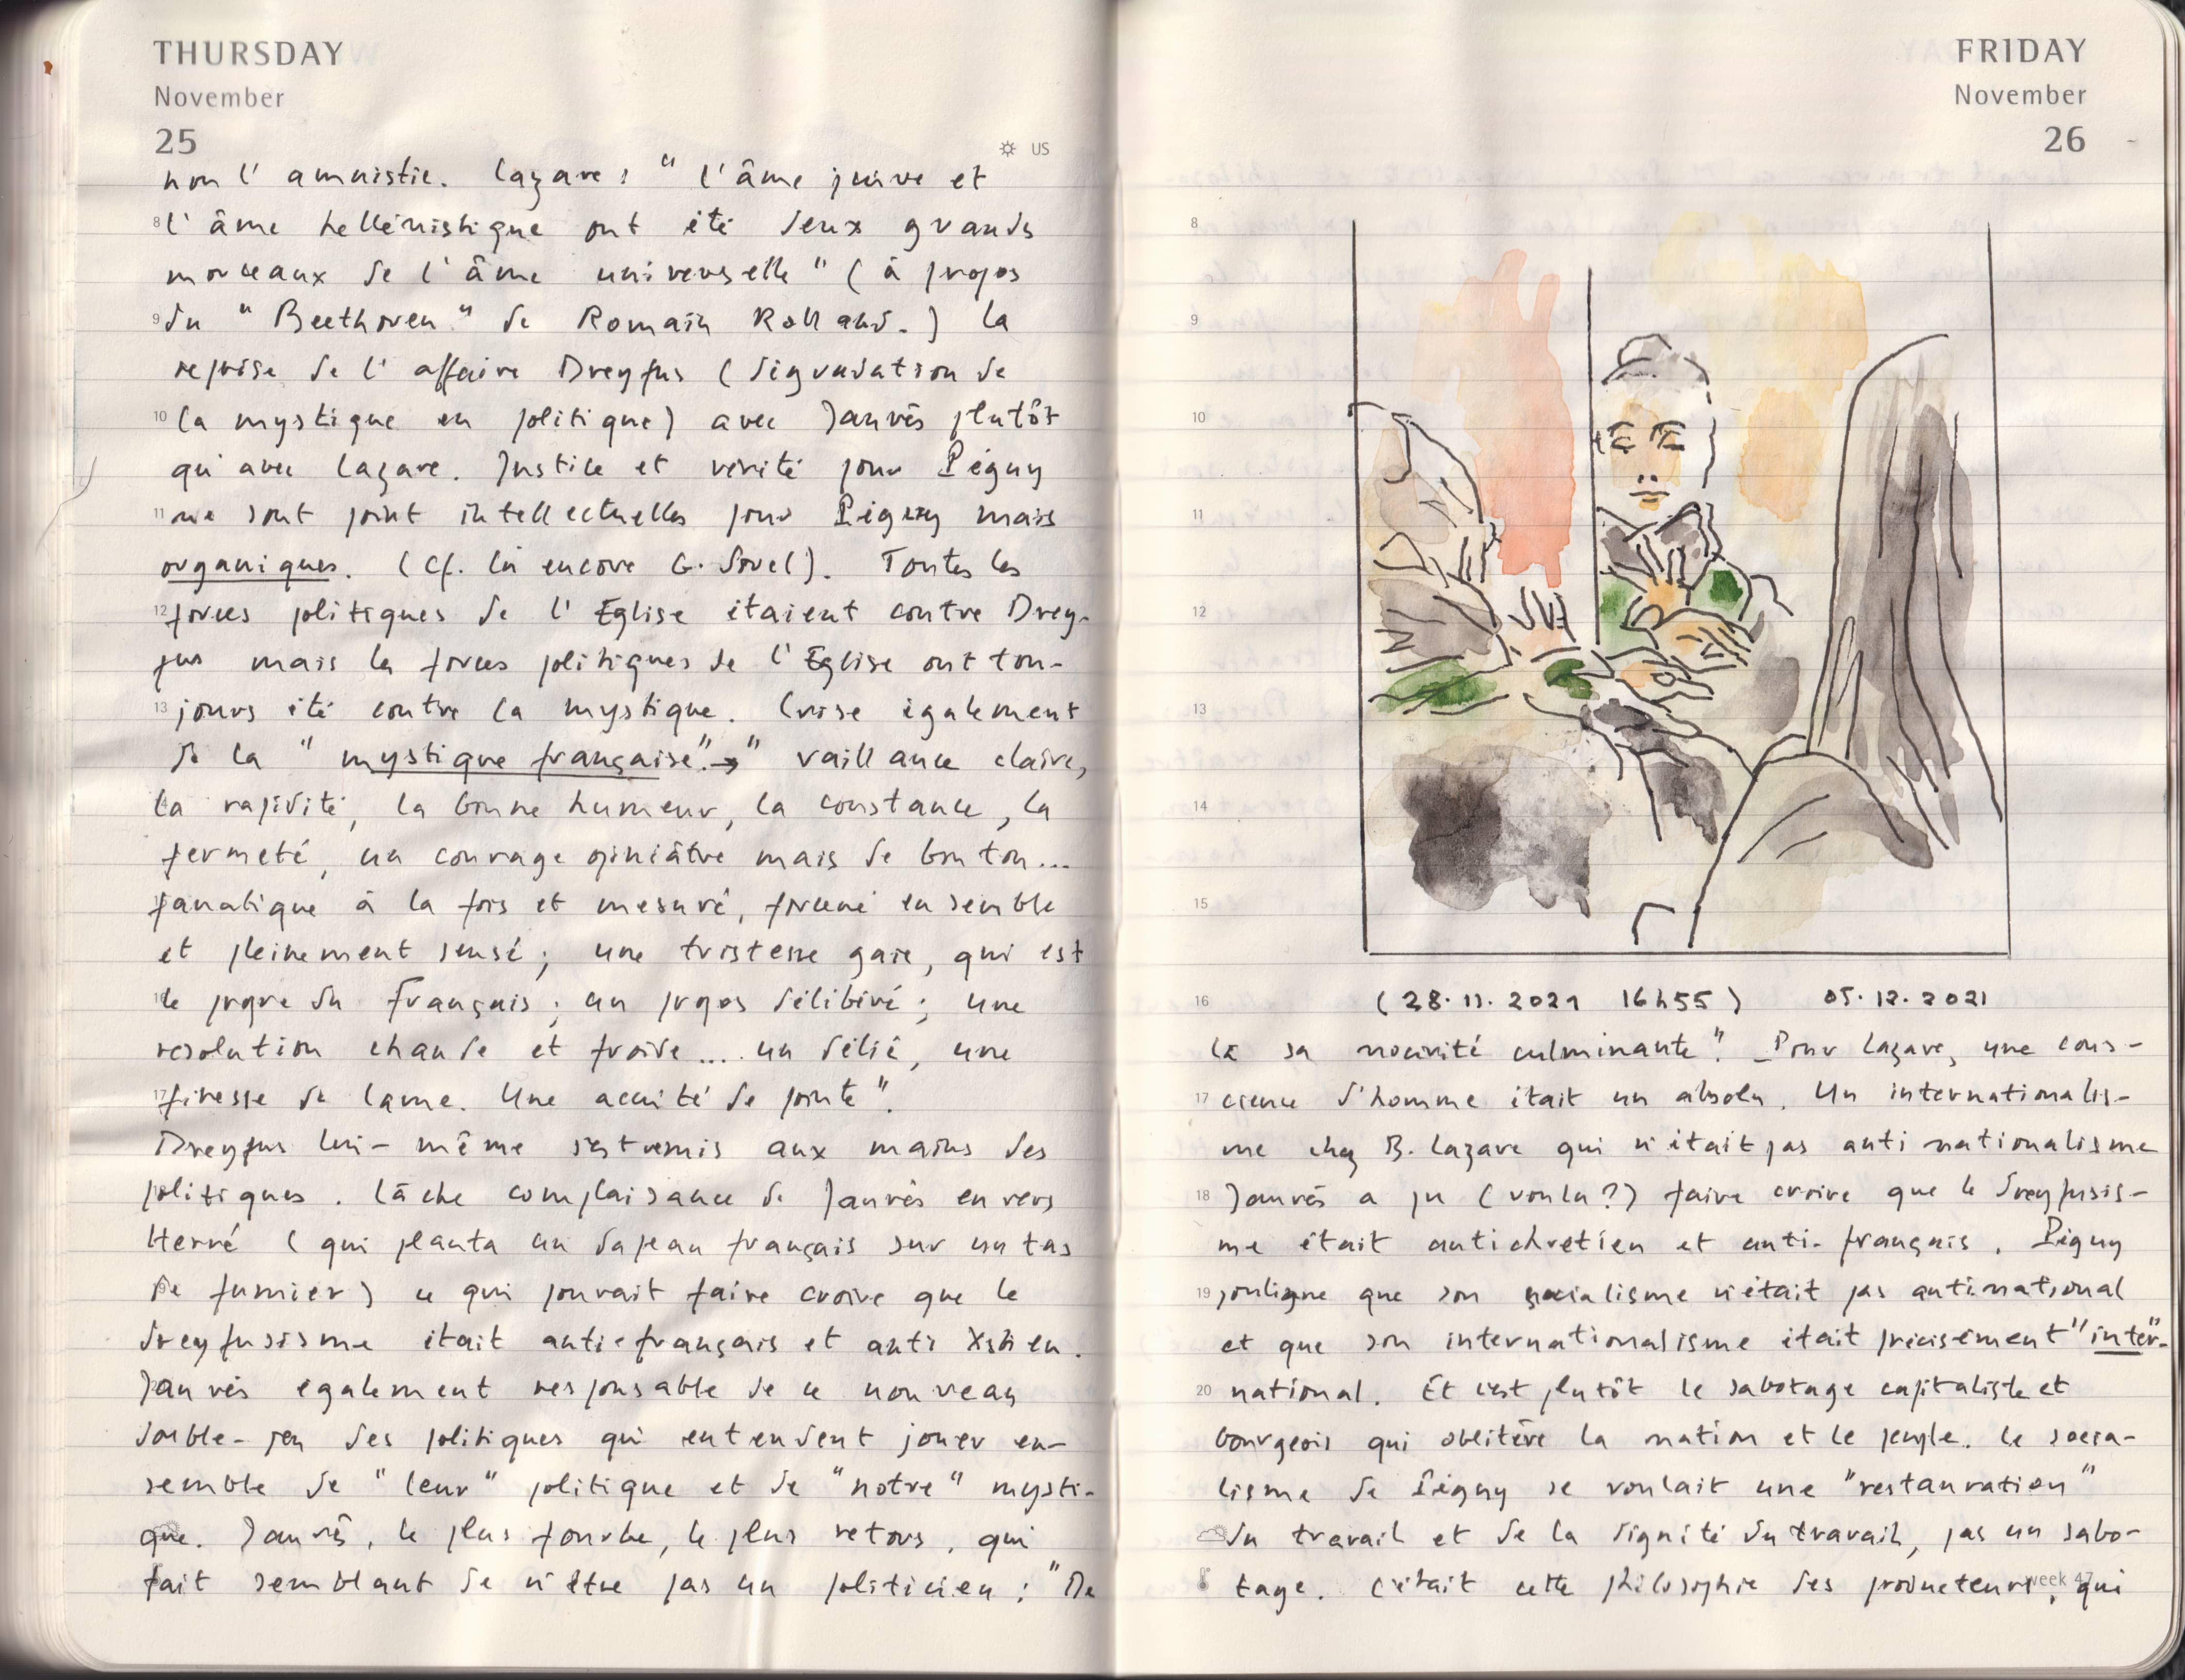 THURSDAY
November
25
US
non l'amnistie. Lazare : "l'âme juive et
8 l'âme hellénistique ont été deux grands
morceaux de l'âme universelle" (à propos
9 du "Beethoven" de Romain Rolland.) La
reprise de l'affaire Dreyfus (dégradation de
10 la mystique en politique) avec Jaurès plutôt
qu'avec Lazare. Justice et vérité pour Péguy
11 ne sont point intellectuelles pour Péguy mais
organiques. (Cf. là encore G. Sorel). Toutes les
12 forces politiques de l'Eglise étaient contre Drey-
fus mais les forces politiques de l'Eglise ont tou-
13 jours été contre la mystique. Crise également
de la "mystique française". → "vaillance claire,
la rapidité, la bonne humeur, la constance, la
fermeté, un courage opiniâtre mais de bon ton...
fanatique à la fois et mesuré, forcené ensemble
et pleinement sensé ; une tristesse gaie, qui est
le propre du Français ; un propos délibéré ; une
résolution chaude et froide.... un délié, une
17 finesse de lame. Une acuité de pointe".
Dreyfus lui-même s'est remis aux mains des
politiques. Lâche complaisance de Jaurès envers
Hervé (qui planta un drapeau français sur un tas
de fumier) ce qui pouvait faire croire que le
dreyfusisme était anti-français et anti Xstien.
Jaurès également responsable de ce nouveau
double-jeu des politiques qui entendent jouer en-
semble de "leur" politique et de "notre" mysti-
que. Jaurès, le plus fourbe, le plus retors, qui
fait semblant de n'être pas un politicien : "De
FRIDAY
November
26
8
9
10
11
12
13
14
15
16 (28.11.2021 16h55) 05.12.2021
là sa nocivité culminante". Pour Lazare, une cons-
17 cience d'homme était un absolu. Un internationalis-
me chez B. Lazare qui n'était pas anti nationalisme
18 Jaurès a pu (voulu ?) faire croire que le dreyfusis-
me était antichrétien et anti-français. Péguy
19 souligne que son socialisme n'était pas antinational
et que son internationalisme était précisément "inter"-
20 national. Et c'est plutôt le sabotage capitaliste et
bourgeois qui oblitère la nation et le peuple. Le socia-
lisme de Péguy se voulait une "restauration"
du travail et de la dignité du travail, pas un sabo-
tage. C'était cette philosophie des producteurs, qui
week 47